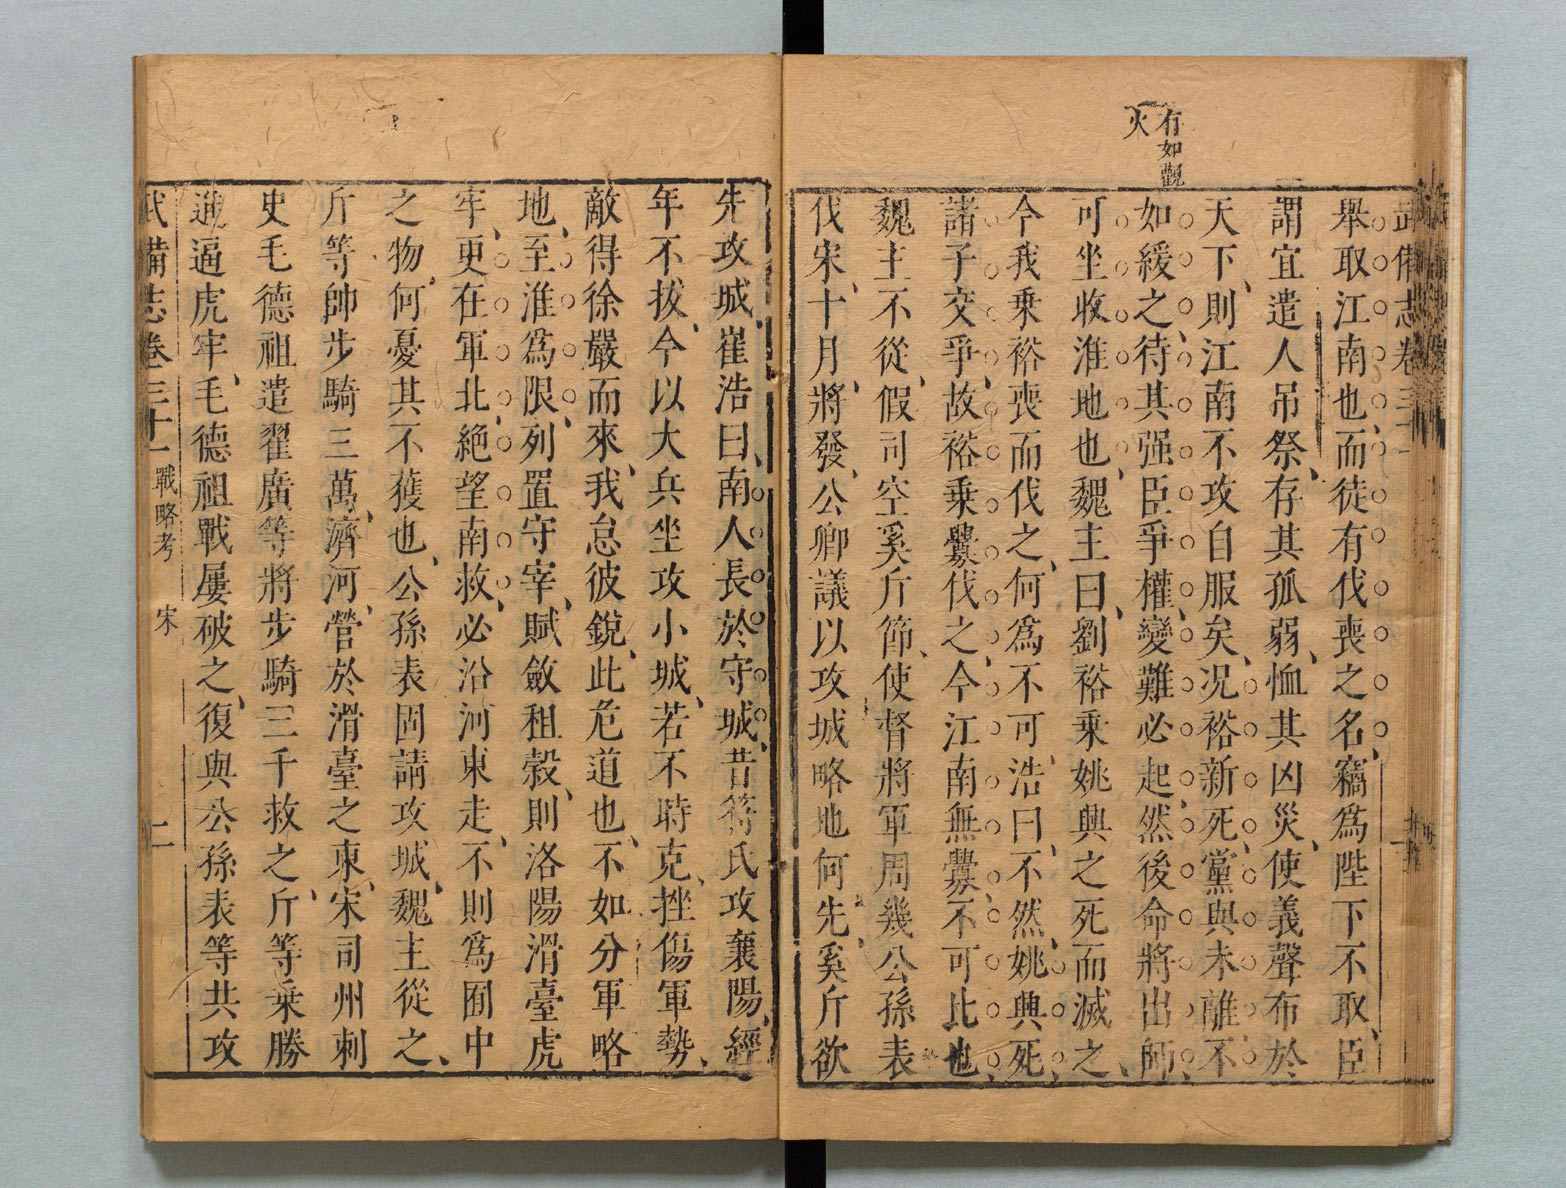 有如觀
火
武備志卷三十一
舉取江南也而徒有伐喪之名竊爲陛下不取臣
謂宜遣人吊祭存其孤弱恤其凶災使義聲布於
天下則江南不攻自服矣况裕新死黨與未離不
如緩之待其强臣爭權變難必起然後命將出師
可坐收淮地也魏主曰劉裕乘姚興之死而滅之
今我乘裕喪而伐之何爲不可浩曰不然姚興死
諸子交爭故裕乘釁伐之今江南無釁不可比也
魏主不從假司空奚斤節使督將軍周幾公孫表
伐宋十月將發公卿議以攻城略地何先奚斤欲
先攻城崔浩曰南人長於守城昔符氏攻襄陽經
年不拔今以大兵坐攻小城若不時克挫傷軍勢
敵得徐嚴而來我怠彼銳此危道也不如分軍略
地至淮爲限列置守宰賦斂租穀則洛陽滑臺虎
牢更在軍北絶望南救必沿河東走不則爲囿中
之物何憂其不獲也公孫表固請攻城魏主從之
斤等帥步騎三萬濟河營於滑臺之東宋司州刺
史毛德祖遣翟廣等將步騎三千救之斤等乘勝
進逼虎牢毛德祖戰屢破之復與公孫表等共攻
武備志卷三十一 戰略考 宋 二